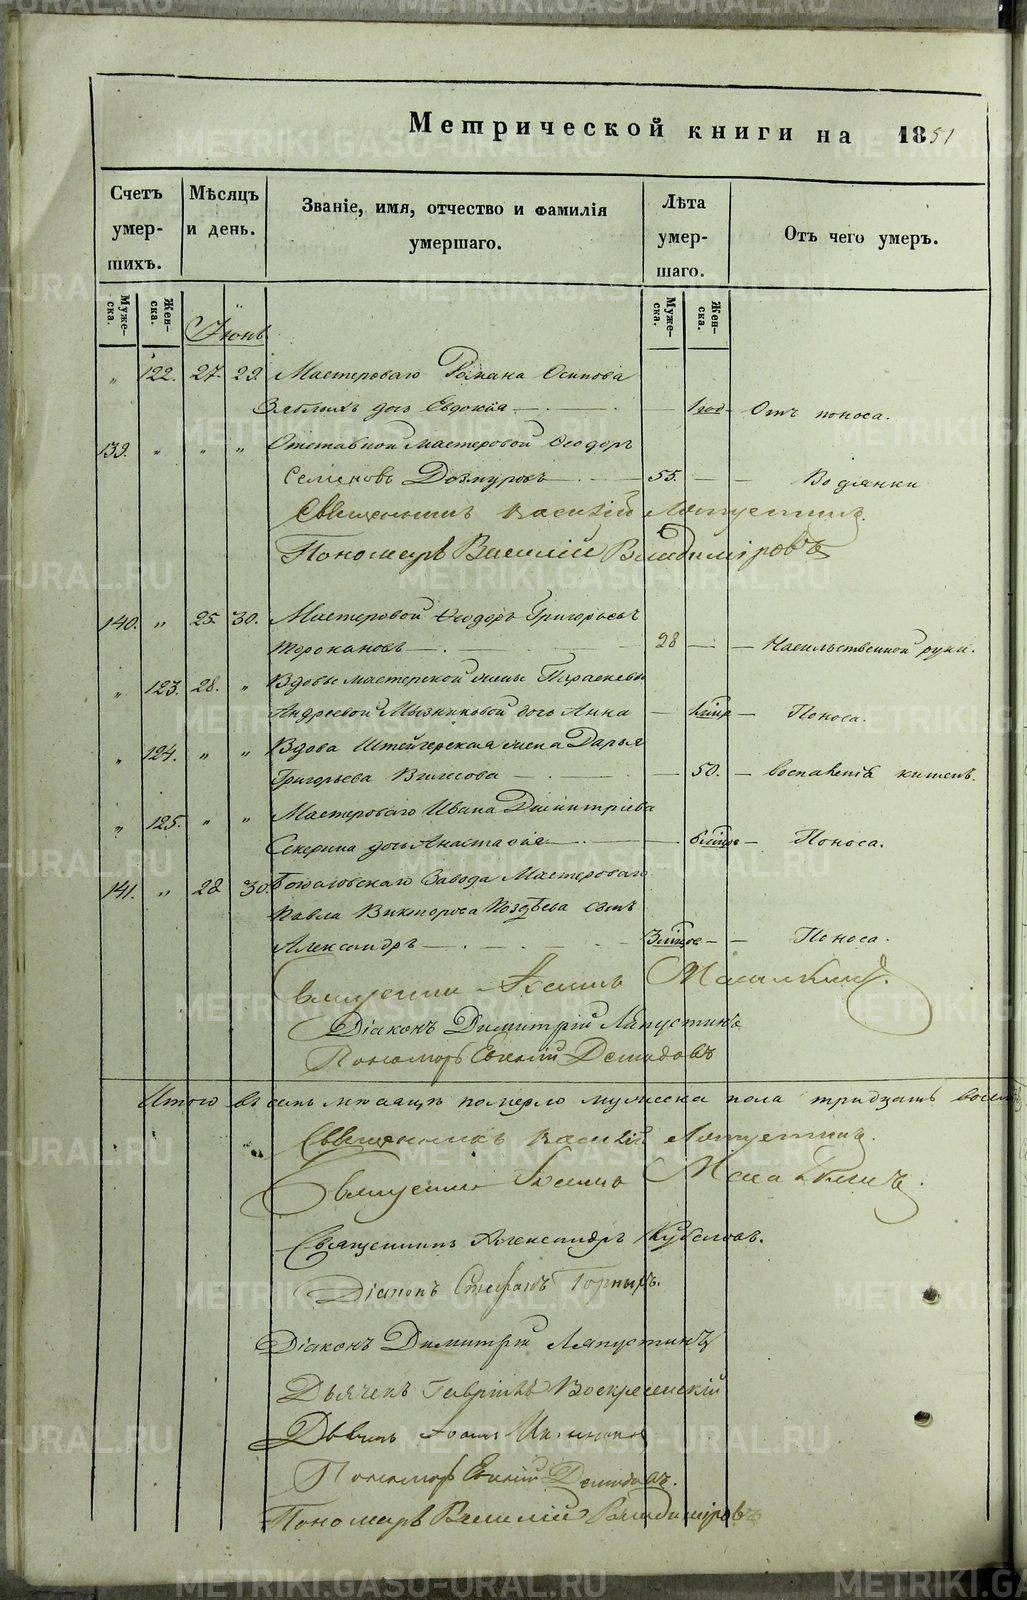 Метрической книги на 1851
Счетъ умер- шихъ.
Мѣсяцъ и день.
Званіе, имя, отчество и фамилія умершаго.
Лѣта умер- шаго.
Отъ чего умеръ.
Муже- ска.
Жен- ска.
Муже- ска.
Жен- ска.
Июнь
" 122. 27. 29. Мастероваго Романа Осипова
Зяблихъ дочь Евдокия 1 год Отъ поноса.
139. " " " Отставной мастеровой Ѳеодоръ
Семеновъ Дозмуровъ 55. Водянки
Священникъ Василій Ляпустинъ.
Пономарь Василій Владиміровъ
140. " 25. 30. Мастеровой Ѳеодоръ Григорьевъ
Торокановъ 28 Насильственной руки.
" 123. 28. " Вдовы мастерской жены Параскевы
Андреевой Мызниковой дочь Анна Поноса.
" 124. " " Вдова Штейгерская жена Дарья
Григорьева 50. воспаленія кишекъ.
" 125. " " Мастероваго Ивана Димитріева
Секерина дочь Анастасія Поноса.
141. " 28 30. завода Мастероваго
Павла Викторова Поздѣева сынъ
Александръ Поноса.
Священникъ
Діаконъ Димитрій Ляпустинъ
Пономарь Евгений Демидовъ
Итого въ семъ мѣсяцѣ померло мужеска пола тридцать восемь
Священникъ Василій Ляпустинъ.
Священникъ
Священникъ Александръ
Діаконъ Стефанъ Горныхъ.
Діаконъ Димитрій Ляпустинъ
Дьячекъ Гавріилъ Воскресенскій
Дьячекъ
Пономарь Евгений Демидовъ.
Пономарь Василій Владиміровъ
METRIKI.GASO-URAL.RU